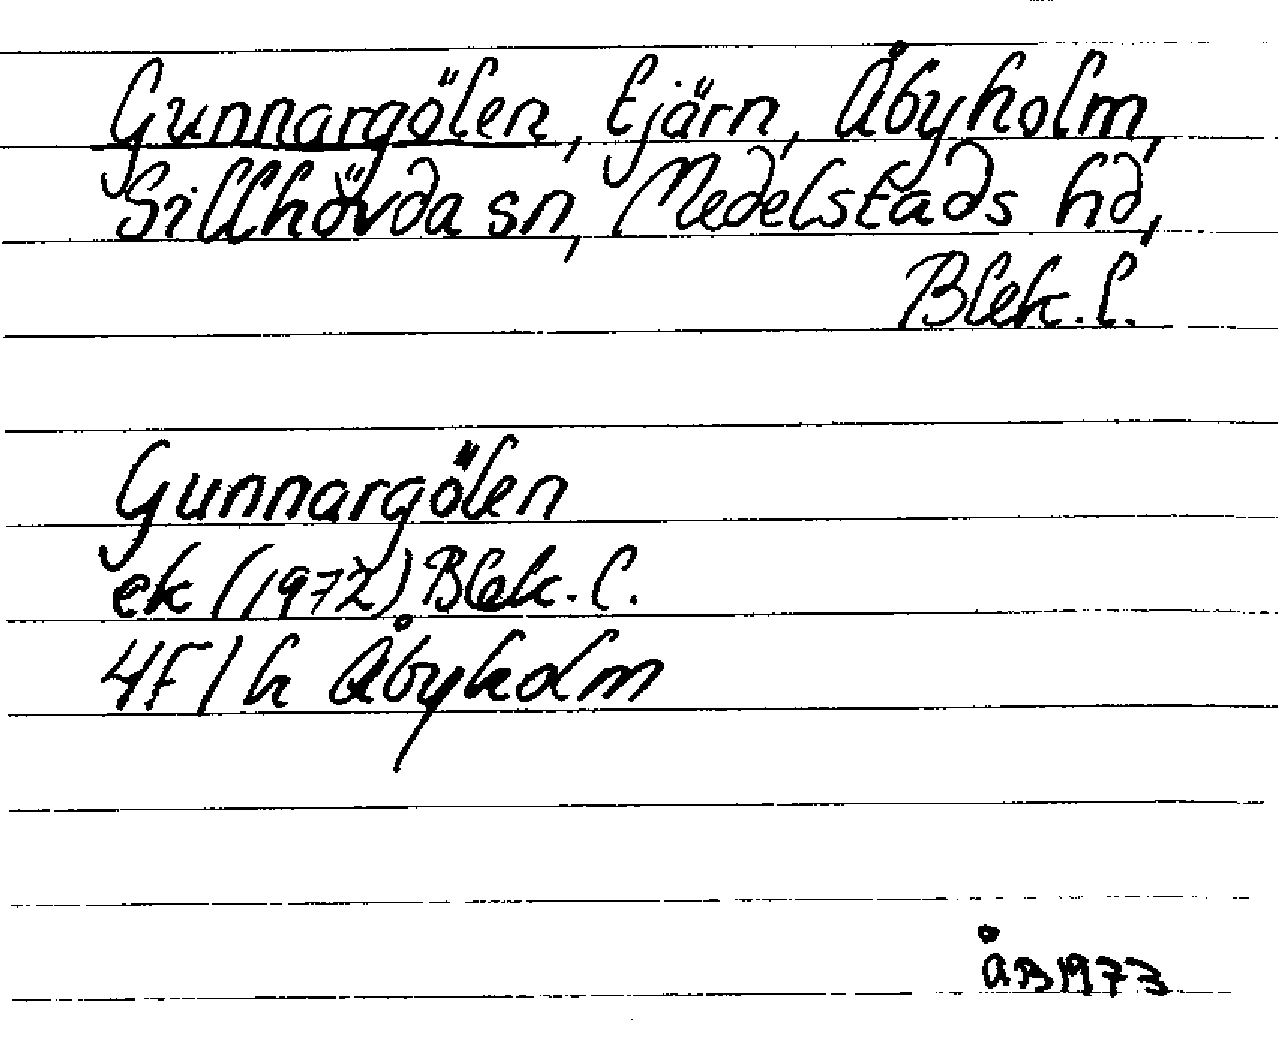 Gunnargölen, tjärn, Åbyholm,
Sillhövda sn, Medelstads hd,
Blek. l.
Gunnargölen
ek (1972) Blek. l.
4F/h Åbyholm
ÅB 1973